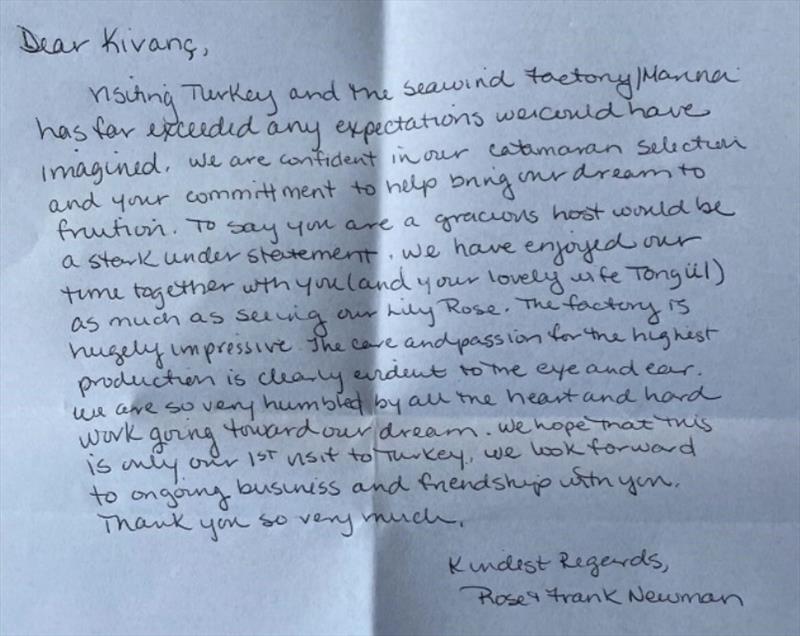 Dear Kivanç,
Visiting Turkey and the Seawind Factory/Marina
has far exceeded any expectations we could have
imagined. We are confident in our catamaran selection
and your committment to help bring our dream to
fruition. To say you are a gracious host would be
a stark under statement. We have enjoyed our
time together with you (and your lovely wife Tongül)
as much as seeing our Lily Rose. The factory is
hugely impressive. The care and passion for the highest
production is clearly evident to the eye and ear.
We are so very humbled by all the heart and hard
work going toward our dream. We hope that this
is only our 1st visit to Turkey, we look forward
to ongoing business and friendship with you.
Thank you so very much.
Kindest Regards,
Rose & Frank Newman